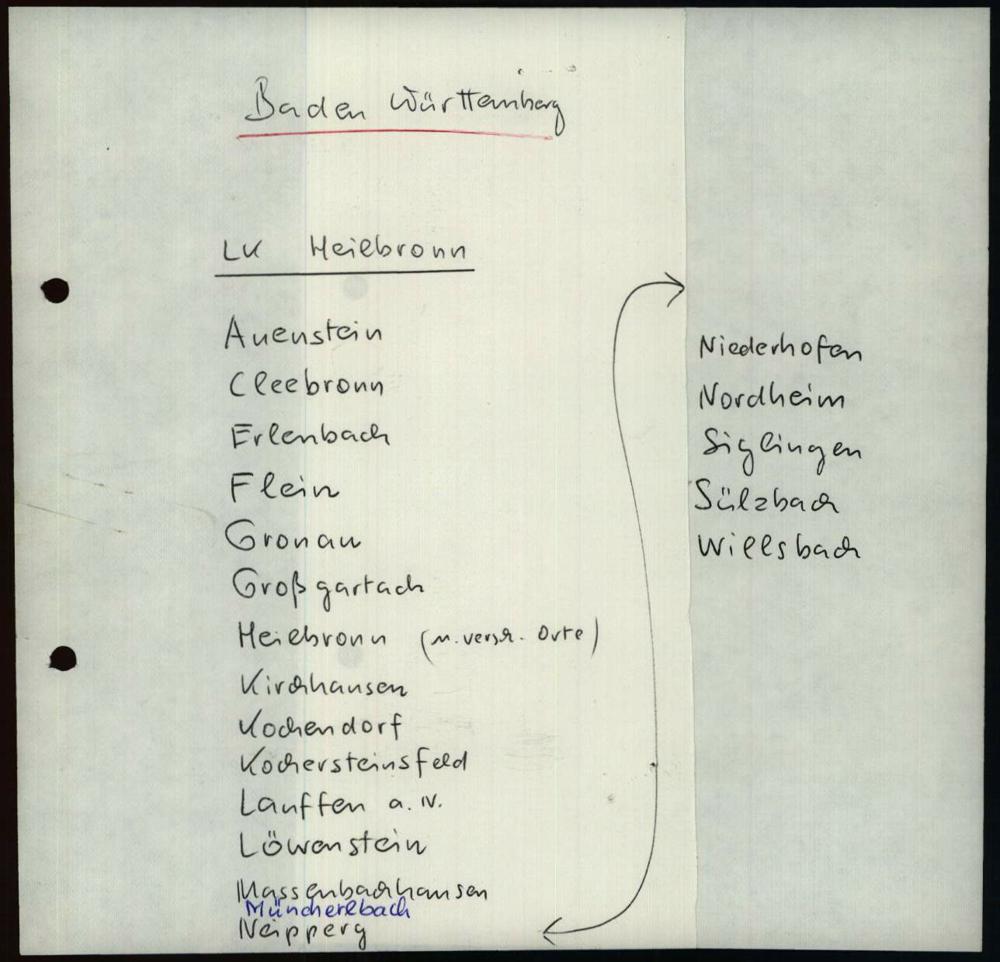 Baden Württemberg
LK Heilbronn
Auenstein
Cleebronn
Erlenbach
Flein
Gronau
Großgartach
Heilbronn (m. versch. Orte)
Kirchhausen
Kochendorf
Kochersteinsfeld
Lauffen a. N.
Löwenstein
Massenbachhausen
Münchelbach
Neipperg
Niederhofen
Nordheim
Siglingen
Sülzbach
Willsbach